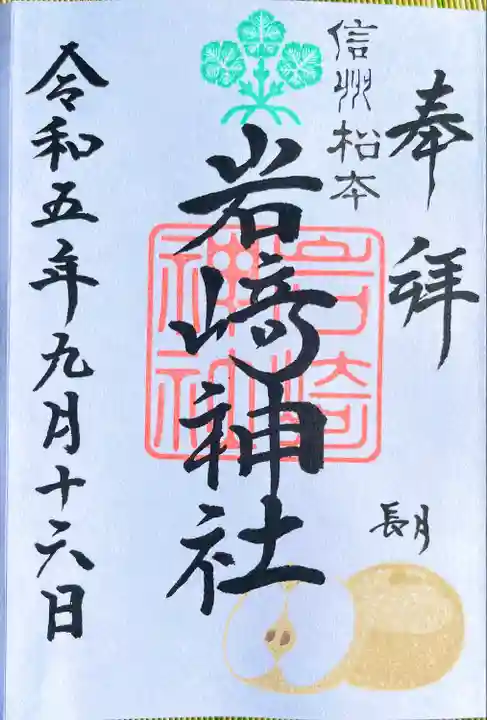 奉拝
信州松本
岩崎神社
岩崎
神社
長月
令和五年九月十六日